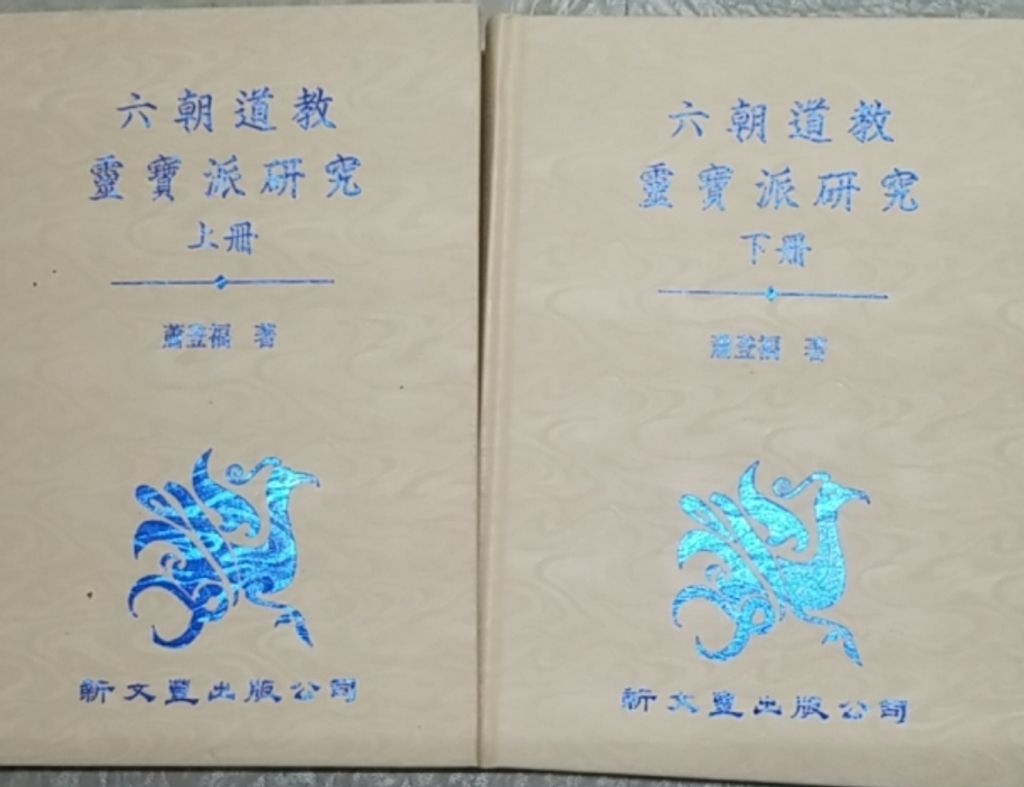 六朝道教
靈寶派研究
上冊
蕭登福 著
新文豐出版公司
六朝道教
靈寶派研究
下冊
蕭登福 著
新文豐出版公司